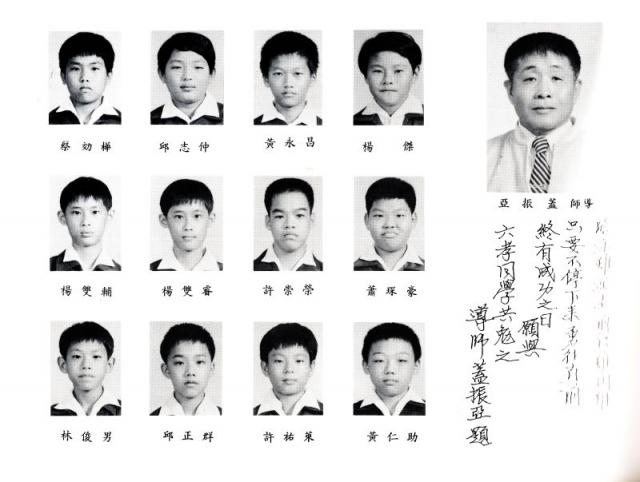 蔡効樺
邱志仲
黃永昌
楊傑
亞振蓋師導
楊雙輔
楊雙睿
許崇榮
蕭琛豪
林俊男
邱正群
許祐萊
黃仁助
只要不停下來勇往
終有成功之日 願與
六孝同學共勉之
導師蓋振亞題